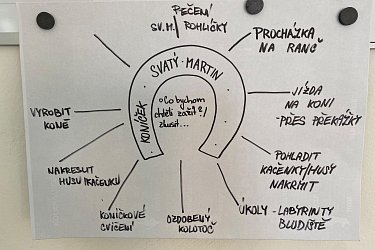 PEČENÍ
SV. M. ROHLÍČKY
PROCHÁZKA
NA RANČ
SVATÝ MARTIN
KONÍČEK
• Co bychom
chtěli zažít?/
zkusit...
JÍZDA
NA KONI
- PŘES PŘEKÁŽKY
VYROBIT
KONĚ
POHLADIT
KAČENKY/HUSY
NAKRMIT
NAKRESLIT
HUSU/KAČENKU
KONÍČKOVÉ
CVIČENÍ
OZDOBENÝ
KOLOTOČ
ÚKOLY - LABYRINTY
BLUDIŠTĚ